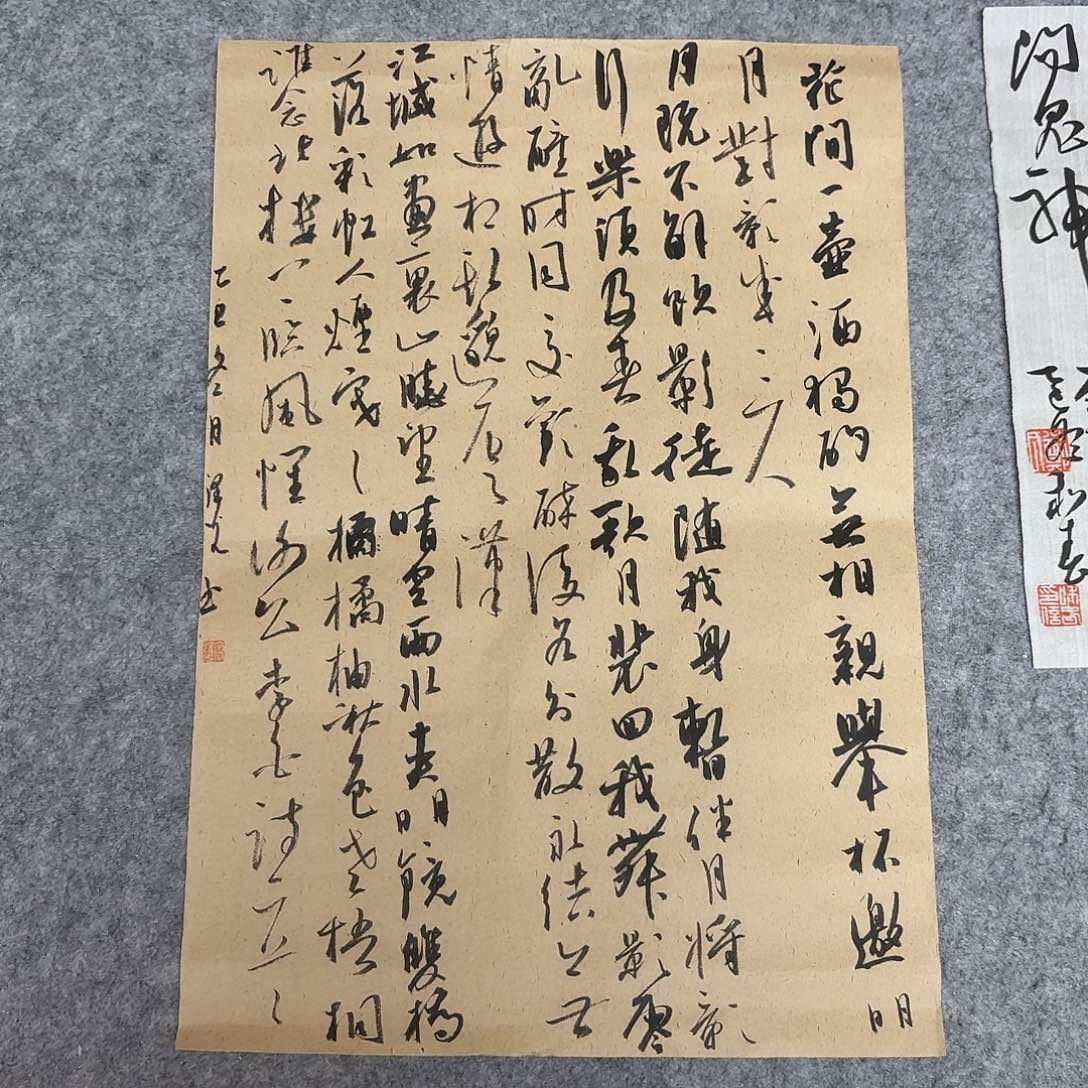 問鬼神
花間一壺酒獨酌無相親舉杯邀明
月對影成三人
月既不解飲影徒隨我身暫伴月將影
行樂須及春我歌月裴回我舞影零
亂醒時同交歡醉後各分散永結無
情遊相期邈雲漢
江城如畫裏山曉望晴空兩水夾明鏡雙橋
落彩虹人煙寒〻橘橘柚秋色老梧桐
誰念北樓上臨風懷謝公李白詩二首
乙巳冬月書